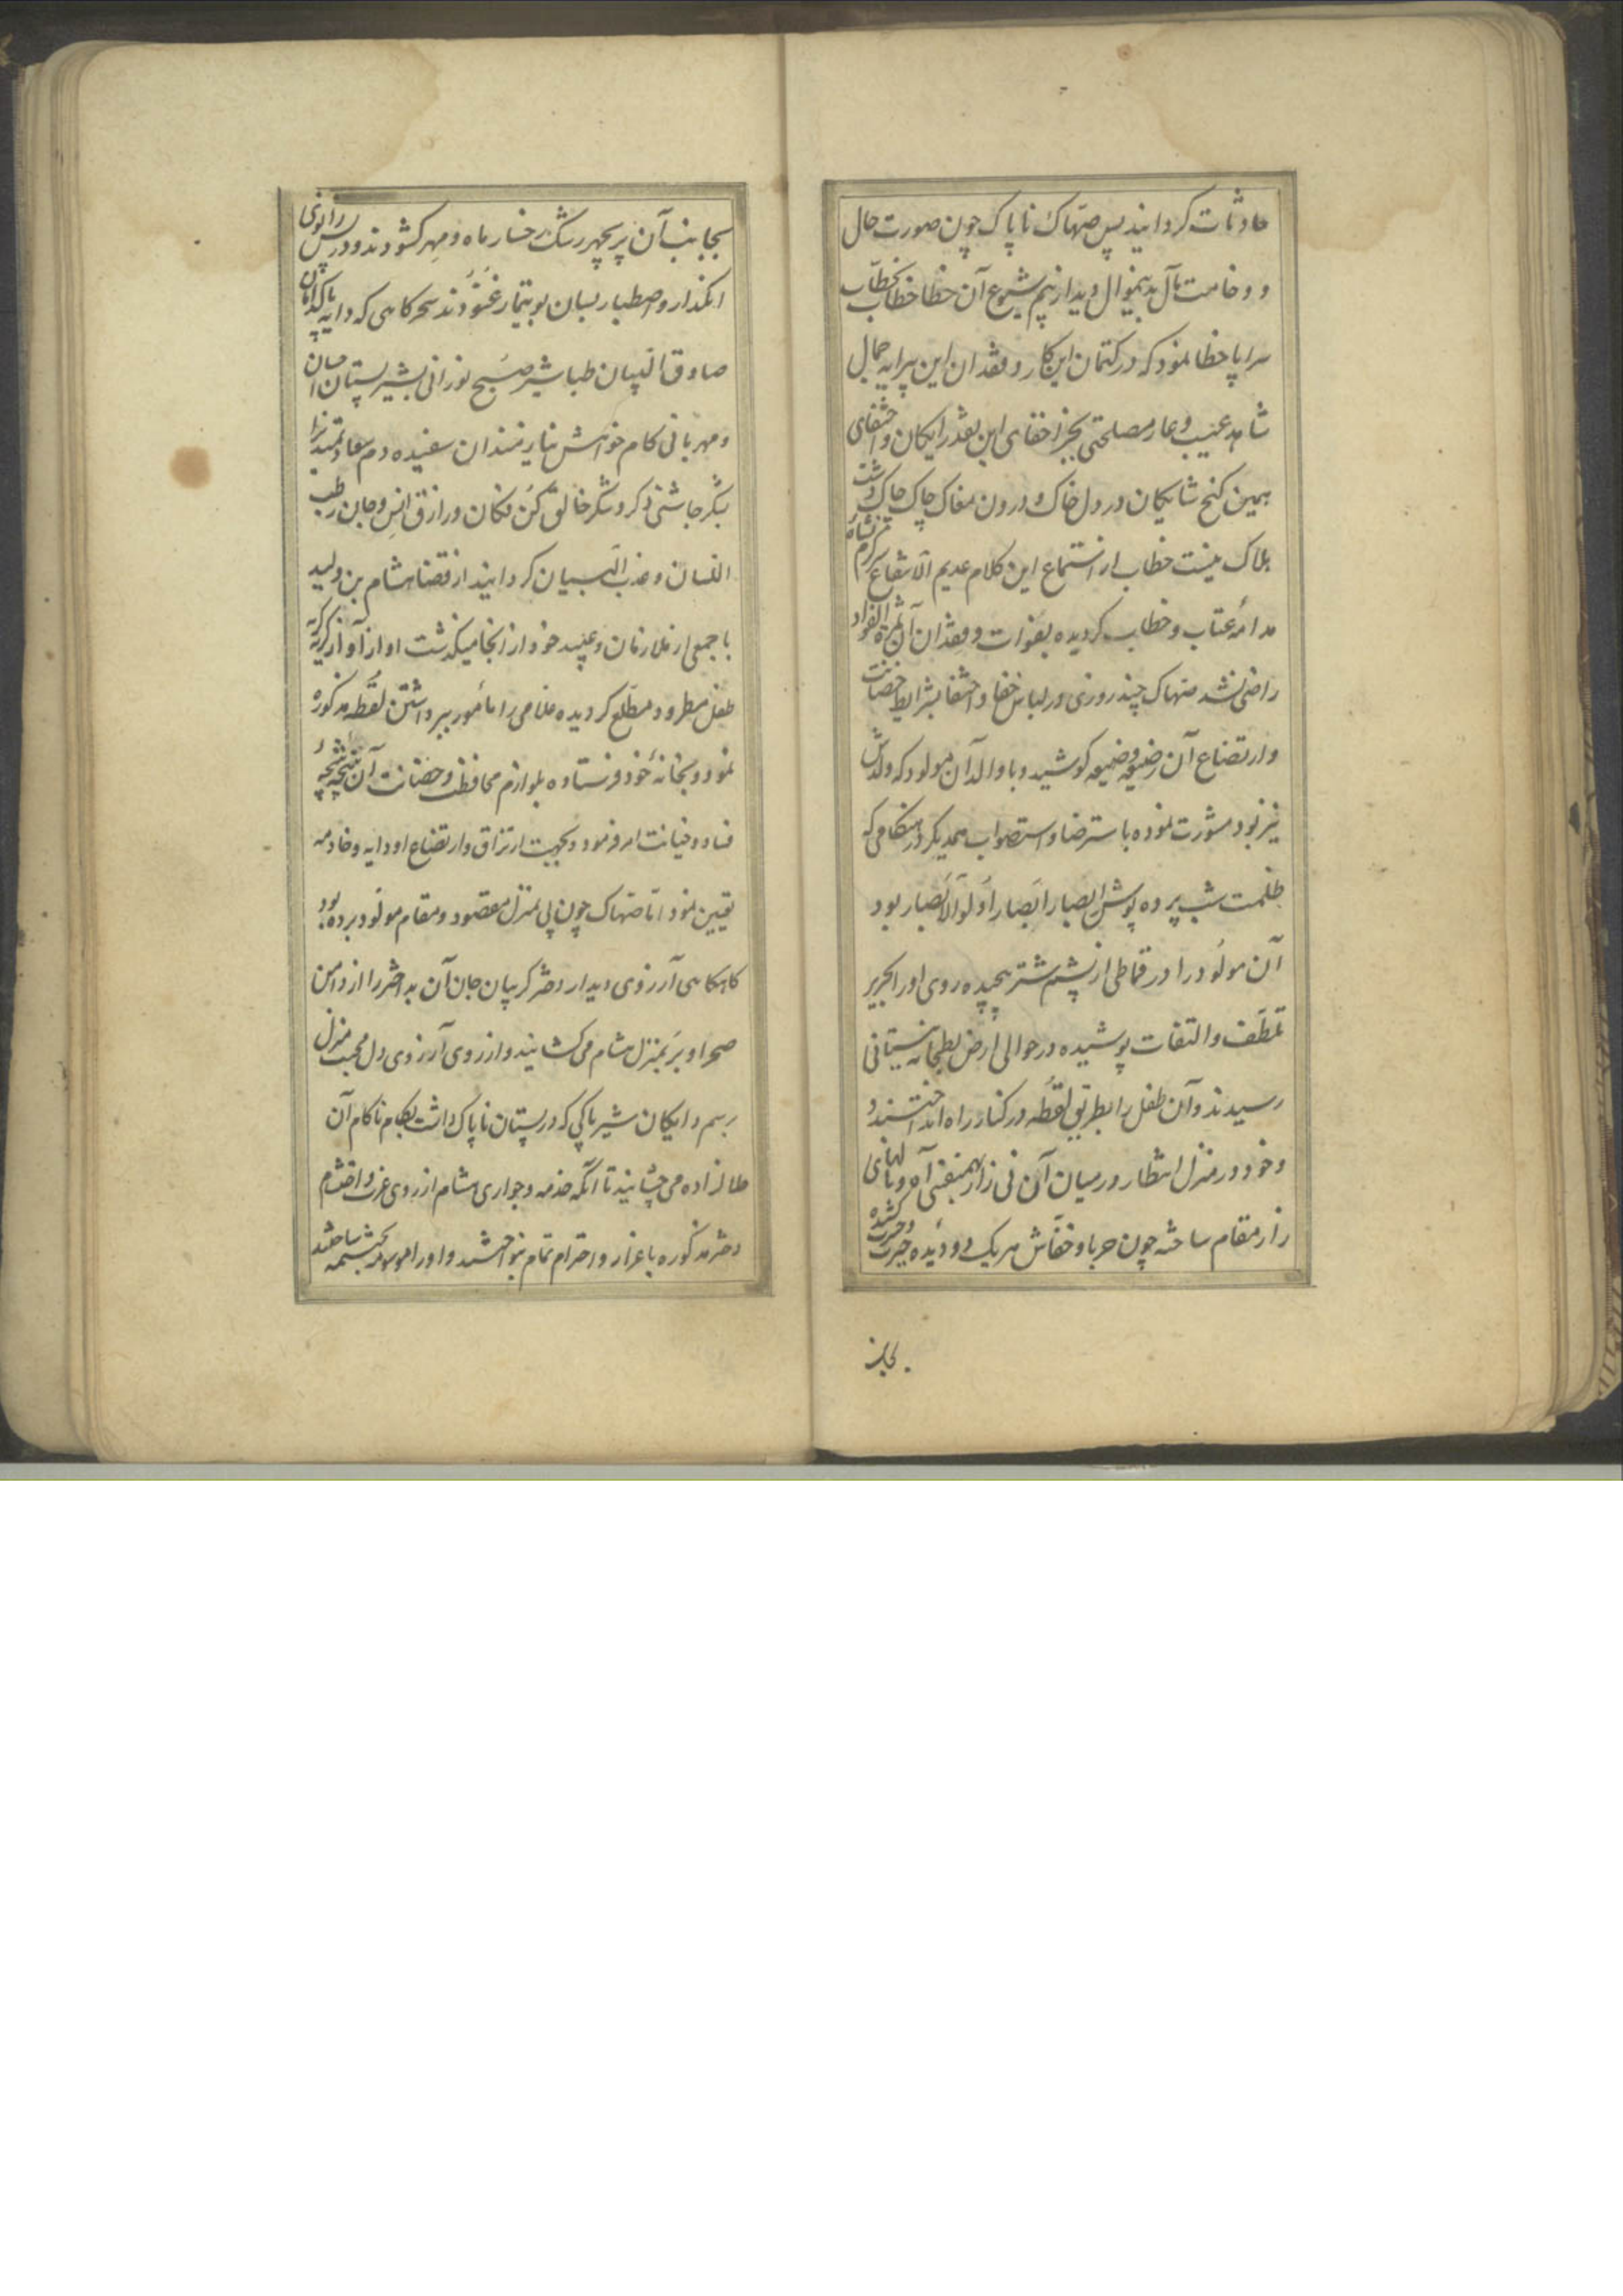 حادثات کردانید پس ضهاک ناپاک چون صورت حال
و وخامت مآل بدینمنوال دید از بیم شیوع آن خطا خطاب بخطاب
سراپا خطا نمود که در کتمان این کار و فقدان این پیرایه جمال
شاهد عیب و عار مصلحتی بجز اخفای این نقد رایکان و اختفای
همین کنج شایکان در دل خاک و درون مغاک چاک چاک
هلاک نیست خطاب از استماع این کلام عدیم الانتفاع
مدامهٔ عتاب و خطاب کردیده بفوات و فقدان آن ثمرة الفواد
راضی نشد ضهاک چند روزی در لباس خفا و اختفا بشرایط حضانت
و ارتضاع آن رضیعهٔ وضیعه کوشید و با والد آن مولود که ولدش
نیز بود مشورت نموده باسترضا و استصواب همدیکر در هنکامی که
ظلمت شب پرده پوش ابصار ابصار اولو الابصار بود
آن مولود را در قماطی از پشم شتر پیچیده روی او را بحریر
تلطف و التفات پوشیده در حوالی ارض بطحا به نیستانی
رسیدند و آن طفل را بطریق لقطه در کنار راه انداختند
و خود در منزل انتظار در میان آن نی زار همنفس آه و نالهای
زار مقام ساخته چون حربا و خفاش هر یک دو دیدهٔ حیرت و حسرت کشوده
بجانب
بجانب آن پریچهر رشک رخسار ماه و مهر کشودند و در پس زانوی
انکدار و اصطبار بسان بوتیمار غنودند سحرکاهی که دایه پاکدامان
صادق البیان طباشیر صبح نورانی بشیر پستان احسان
و مهربانی کام خواهش نیازمندان سفیده دم سعادتمند را
بشکر چاشنی ذکر و شکر خالق کن فکان و رازق انس و جان رطب
اللسان و عذب البیان کردانید از قضا هشام بن ولید
با جمعی از ملازمان و عبید خود از انجا میکذشت او از آواز کریه
طفل مطرود مطلع کردیده غلامی را مأمور ببرداشتن لقطه مذکوره
نمود و بخانهٔ خود فرستاده بلوازم محافظت و حضانت آن نتیجهٔ
فساد و خیانت امر فرمود و بجهت ارتزاق و ارتضاع او دایه و خادمه
تعیین نمود اما ضهاک چون پی بمنزل مقصود و مقام مولود برده بود
کاهکاهی آرزوی دیدار دختر کریبان جان آن بداختر را از دامن
صحرا و بر بمنزل هشام می کشانید و از روی آرزوی دل محبت منزل
برسم دایکان شیر پاکی که در پستان ناپاک داشت بکام ناکام آن
ظالزاده می چشانید تا آنکه خدمه و جواری هشام از روی عزت و احتشام
دختر مذکوره باعزاز و احترام تمام بنواختند و او را موسوم بحنتمه ساختند